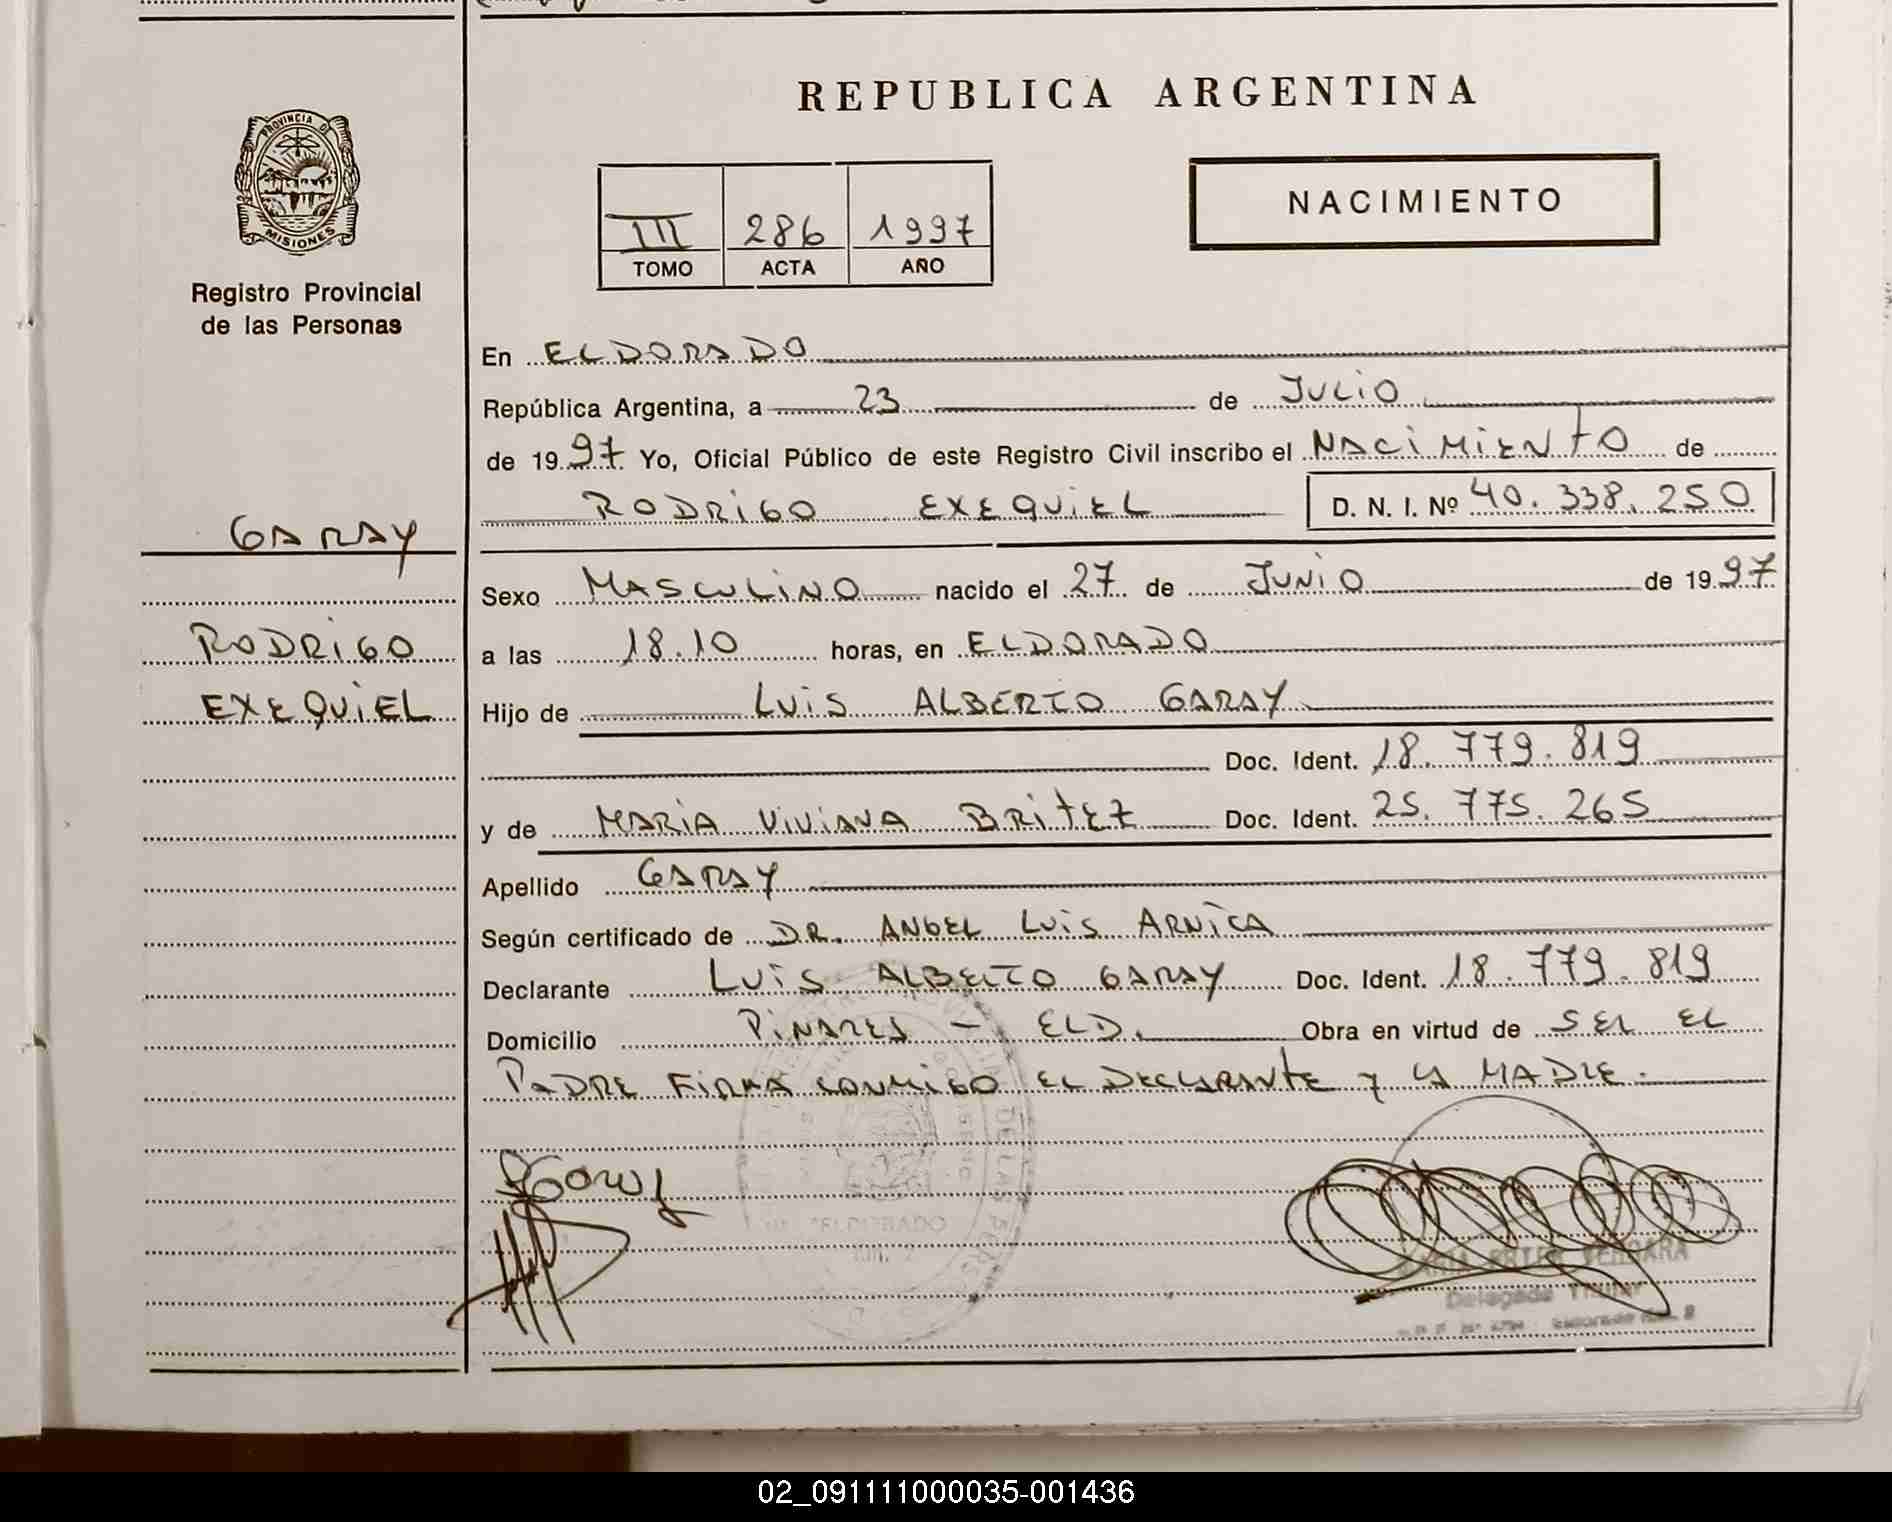 REPUBLICA ARGENTINA
PROVINCIA DE
MISIONES
Registro Provincial
de las Personas
III 286 1997
TOMO ACTA AÑO
NACIMIENTO
En ELDORADO
República Argentina, a 23 de JULIO
de 1997 Yo, Oficial Público de este Registro Civil inscribo el NACIMIENTO de
RODRIGO EXEQUIEL D. N. I. Nº 40.338.250
GARAY
RODRIGO
EXEQUIEL
Sexo MASCULINO nacido el 27 de JUNIO de 1997
a las 18.10 horas, en ELDORADO
Hijo de LUIS ALBERTO GARAY
Doc. Ident. 18.779.819
y de MARIA VIVIANA BRITEZ Doc. Ident. 25.775.265
Apellido GARAY
Según certificado de DR. ANGEL LUIS ARNICA
Declarante LUIS ALBERTO GARAY Doc. Ident. 18.779.819
Domicilio PINARES - ELD. Obra en virtud de SER EL
PADRE FIRMA CONMIGO EL DECLARANTE Y LA MADRE.
DE LAS
ELDORADO
MARIA VERGARA
Delegada Titular
02_091111000035-001436